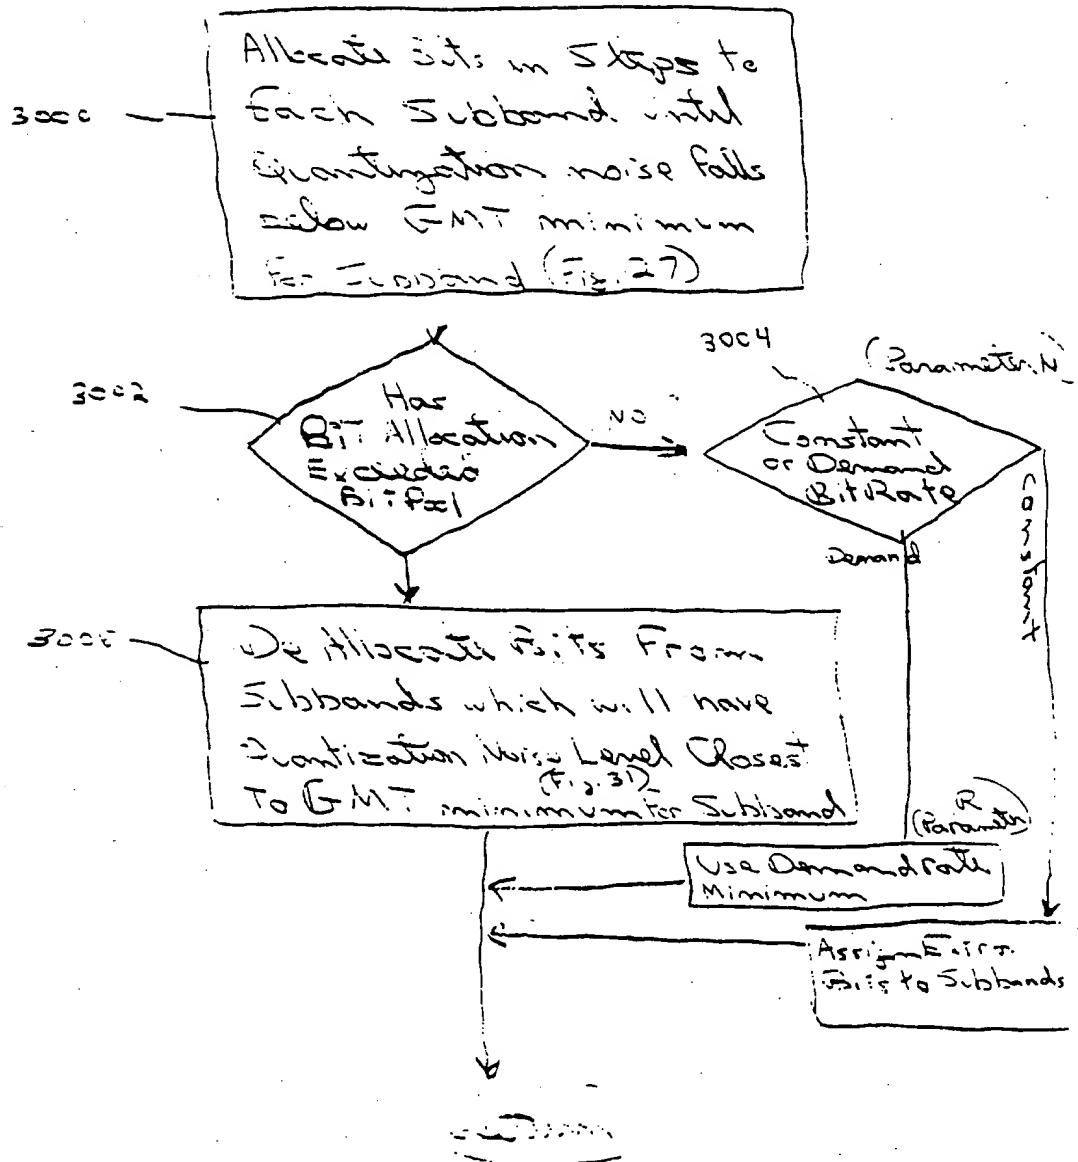 Allocate Bits in Steps to
Each Subband until
Quantization noise Falls
Below GMT minimum
For Subband (Fig. 27)
3000
3002
Has
Bit Allocation
Exceeded
Bit Pool
NO
3004
(Parameter N)
Constant
or Demand
Bit Rate
Demand
Constant
De Allocate Bits From
Subbands which will have
Quantization Noise Level Closest
(Fig. 31)
To GMT minimum for Subband
R
(Parameter)
Use Demand rate
Minimum
Assign Extra
Bits to Subbands